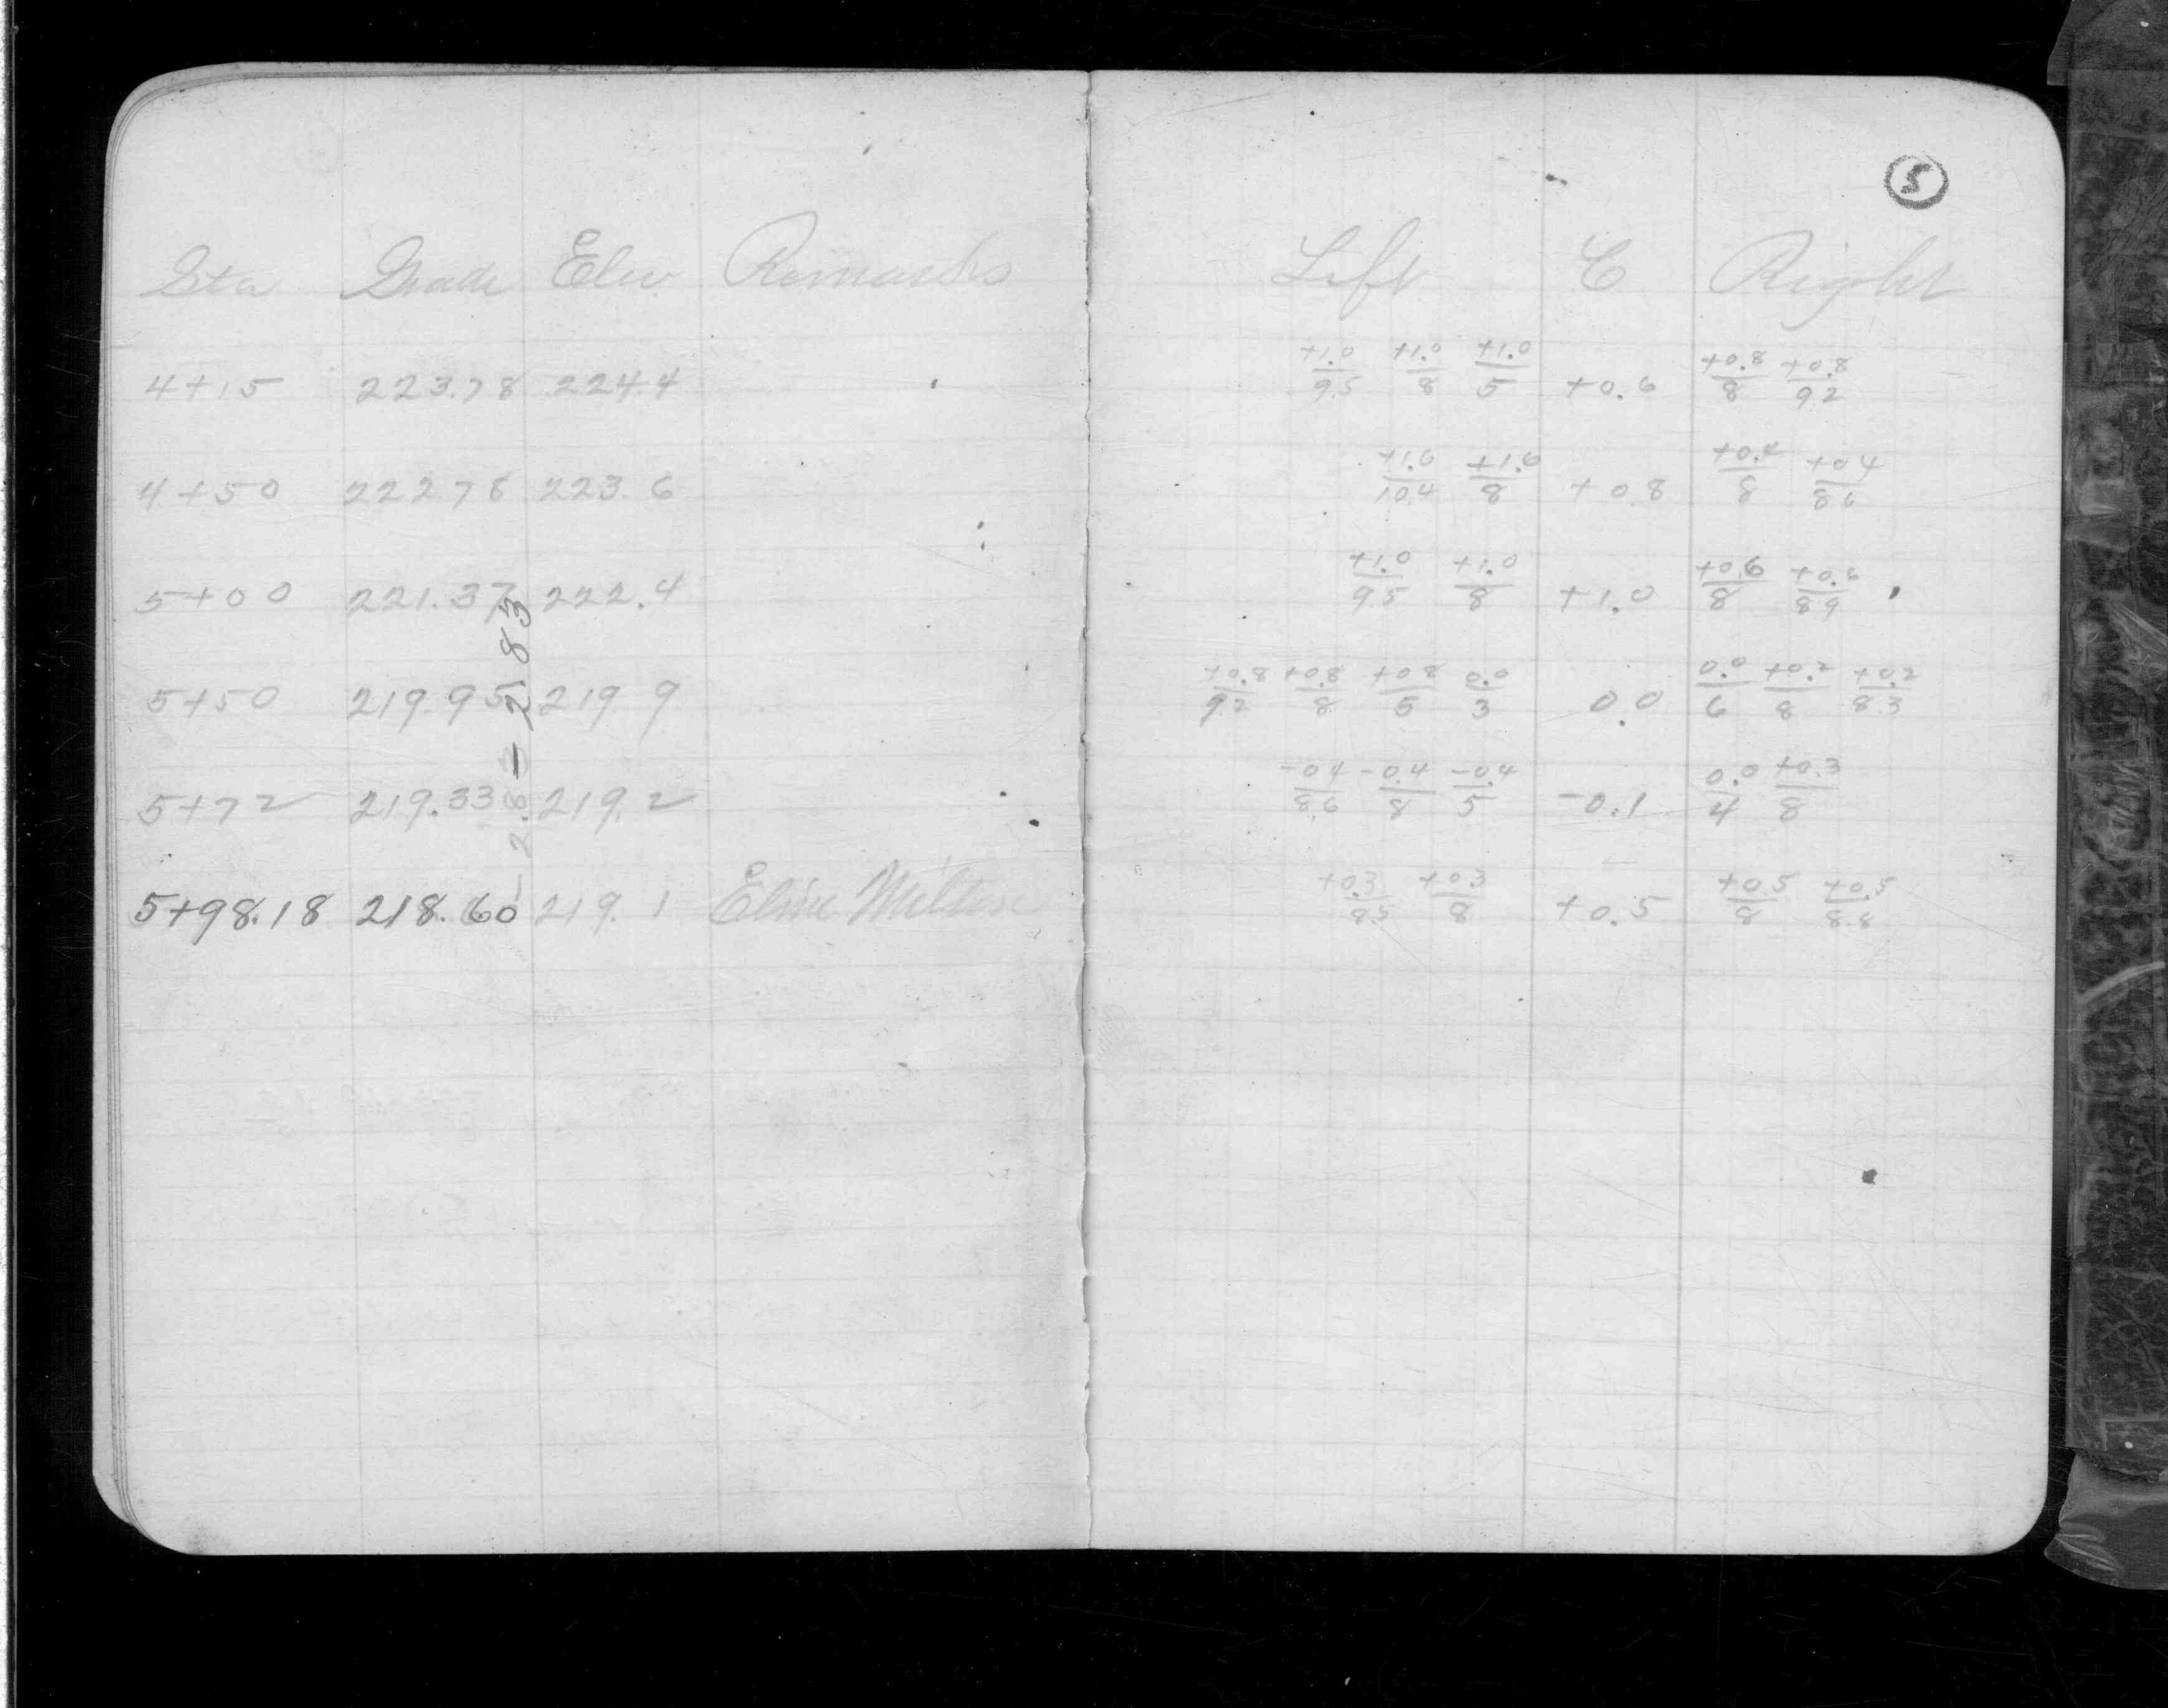 5
Sta Grade Elev Remarks Left C Right
4+15 223.78 224.4 +1.0/9.5 +1.0/8 +1.0/5 +0.6 +0.8/8 +0.8/9.2
4+50 222.78 223.6 +1.6/10.4 +1.6/8 +0.8 +0.4/8 +0.4/8.6
5+00 221.37 222.4 +1.0/9.5 +1.0/8 +1.0 +0.6/8 +0.6/8.9
5+50 219.95 219.9 +0.8/9.2 +0.8/8 +0.8/5 0.0/3 0.0 0.0/6 +0.2/8 +0.2/8.3
5+72 219.33 219.2 -0.4/8.6 -0.4/8 -0.4/5 -0.1 0.0/4 +0.3/8
5+98.18 218.60 219.1 +0.3/8.5 +0.3/8 +0.5 +0.5/8 +0.5/8.8
- 2.83